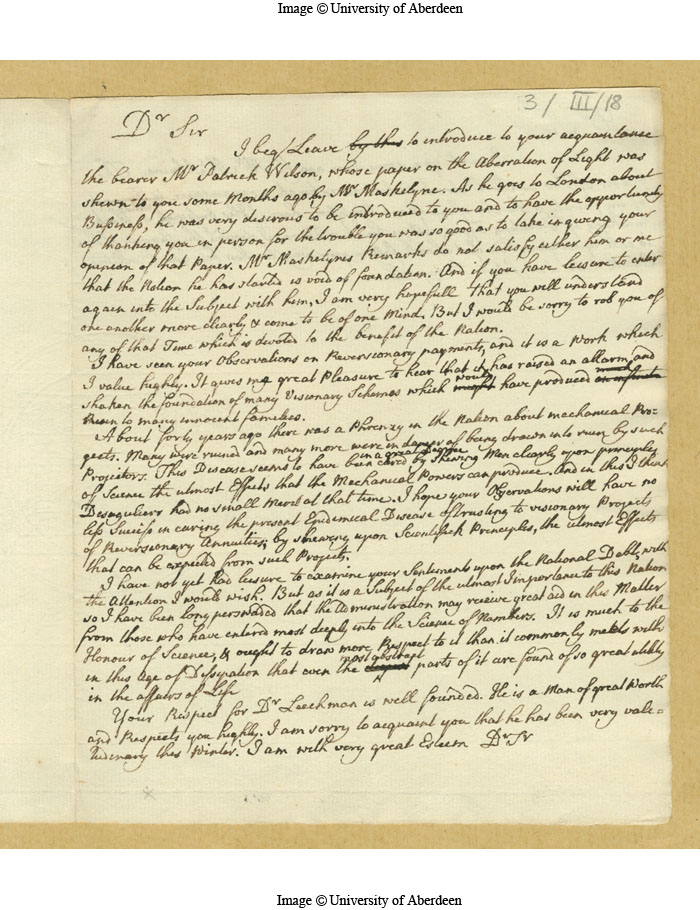 Image © University of Aberdeen
3/III/18
Dr Sir
I beg Leave by this to introduce to your acquaintance
the bearer Mr Patrick Wilson, whose paper on the Aberration of Light was
shewn to you some Months ago by Mr Maskelyne. As he goes to London about
Bussiness, he was very desirous to be introduced to you and to have the opportunity
of thanking you in person for the trouble you was so good as to take in giving your
opinion of that Paper. Mr Maskelynes Remarks do not satisfy either him or me
that the Notion he has started is void of foundation. And if you have leisure to enter
again into the Subject with him, I am very hopefull that you will understand
one another more clearly & come to be of one Mind. But I would be sorry to rob you of
any of that Time which is devoted to the benefit of the Nation.
I have seen your Observations on Reversionary payments, and it is a Work which
I value highly. It gives me great Pleasure to hear that it has raised an allarm, and
shaken the foundation of many Visionary Schemes which would might have produced much
ruin to many innocent families.
About forty years ago there was a Phrenzy in the Nation about mechanical Pro-
jects. Many were ruined and many more were in danger of being drawn into ruin by such
Projectors. This Disease seems to have been in a great Degree cured by shewing Men clearly upon principles
of Science the utmost Effects that the Mechanical Powers can produce. And in this I think
Desaguliers had no small Merit at that time. I hope your Observations will have no
less Success in curing the present Epidemical Disease of trusting to visionary Projects
of Reversionary Annuities, by shewing upon Scientifick Principles, the utmost Effects
that can be expected from such Projects.
I have not yet had leisure to examine your Sentiments upon the National Debt, with
the Attention I would wish. But as it is a Subject of the utmost Importance to this Nation
so I have been long perswaded that the Administration may receive great aid in this Matter
from those who have entered most deeply into the Science of Numbers. It is much to the
Honour of Science, & ought to draw more Respect to it than it commonly meets with
in this Age of Dissipation that even the most abstract parts of it are found of so great utility
in the affairs of Life
Your Respect for Dr Leechman is well founded. He is a Man of great Worth
and Respects you highly. I am sorry to acquaint you that he has been very vale=
tudinary this Winter. I am with very great Esteem Dr Sr
Image © University of Aberdeen